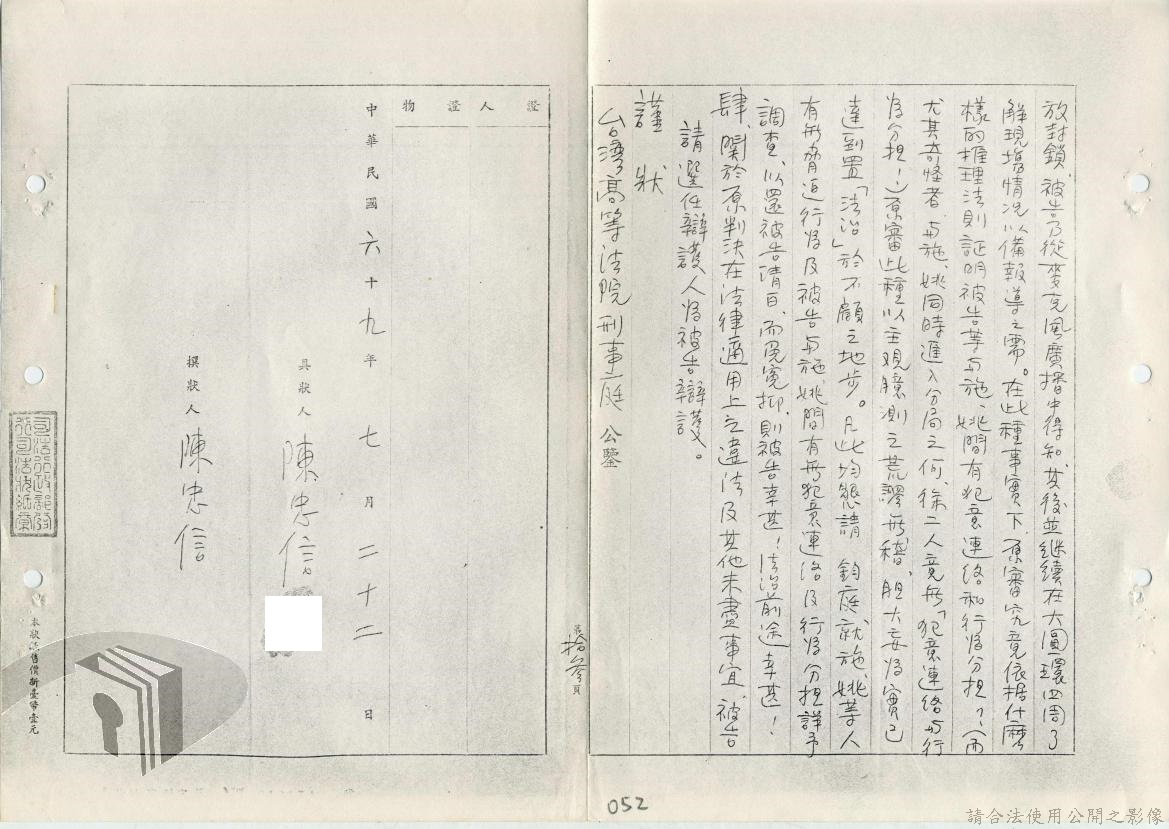 放封鎖,被告乃從麥克風廣播中得知,其後並継續在大圓環四周了
解現場情況以備報導之需。在此種事實下,原審究竟依據什麼
樣的推理法則証明被告等与施、姚間有犯意連絡和行為分担?(而
尤其奇怪者,与施、姚同時進入分局之何、徐二人竟無「犯意連絡与行
為分担!」)原審此種以主观臆測之荒謬無稽,胆大妄為實已
達到置「法治」於不顧之地步。凡此均懇請 鈞庭就施、姚等人
有無脅迫行為及被告与施、姚間有無犯意連洛及行為分担詳予
調查,以還被告清白,而免寃抑,則被告幸甚!法治前途幸甚!
肆、関於原判決在法律適用上之違法及其他未盡事宜,被告
請選任辯護人為被告辯護。
謹 狀
台灣高等法院 刑事庭 公鑒
第拾參頁
證人
證物
中華民國六十九年七月二十二日
具狀人 陳忠信
撰狀人 陳忠信
司法行政部發
行司法狀紙章
本狀紙售價新臺幣壹元
052
請合法使用公開之影像